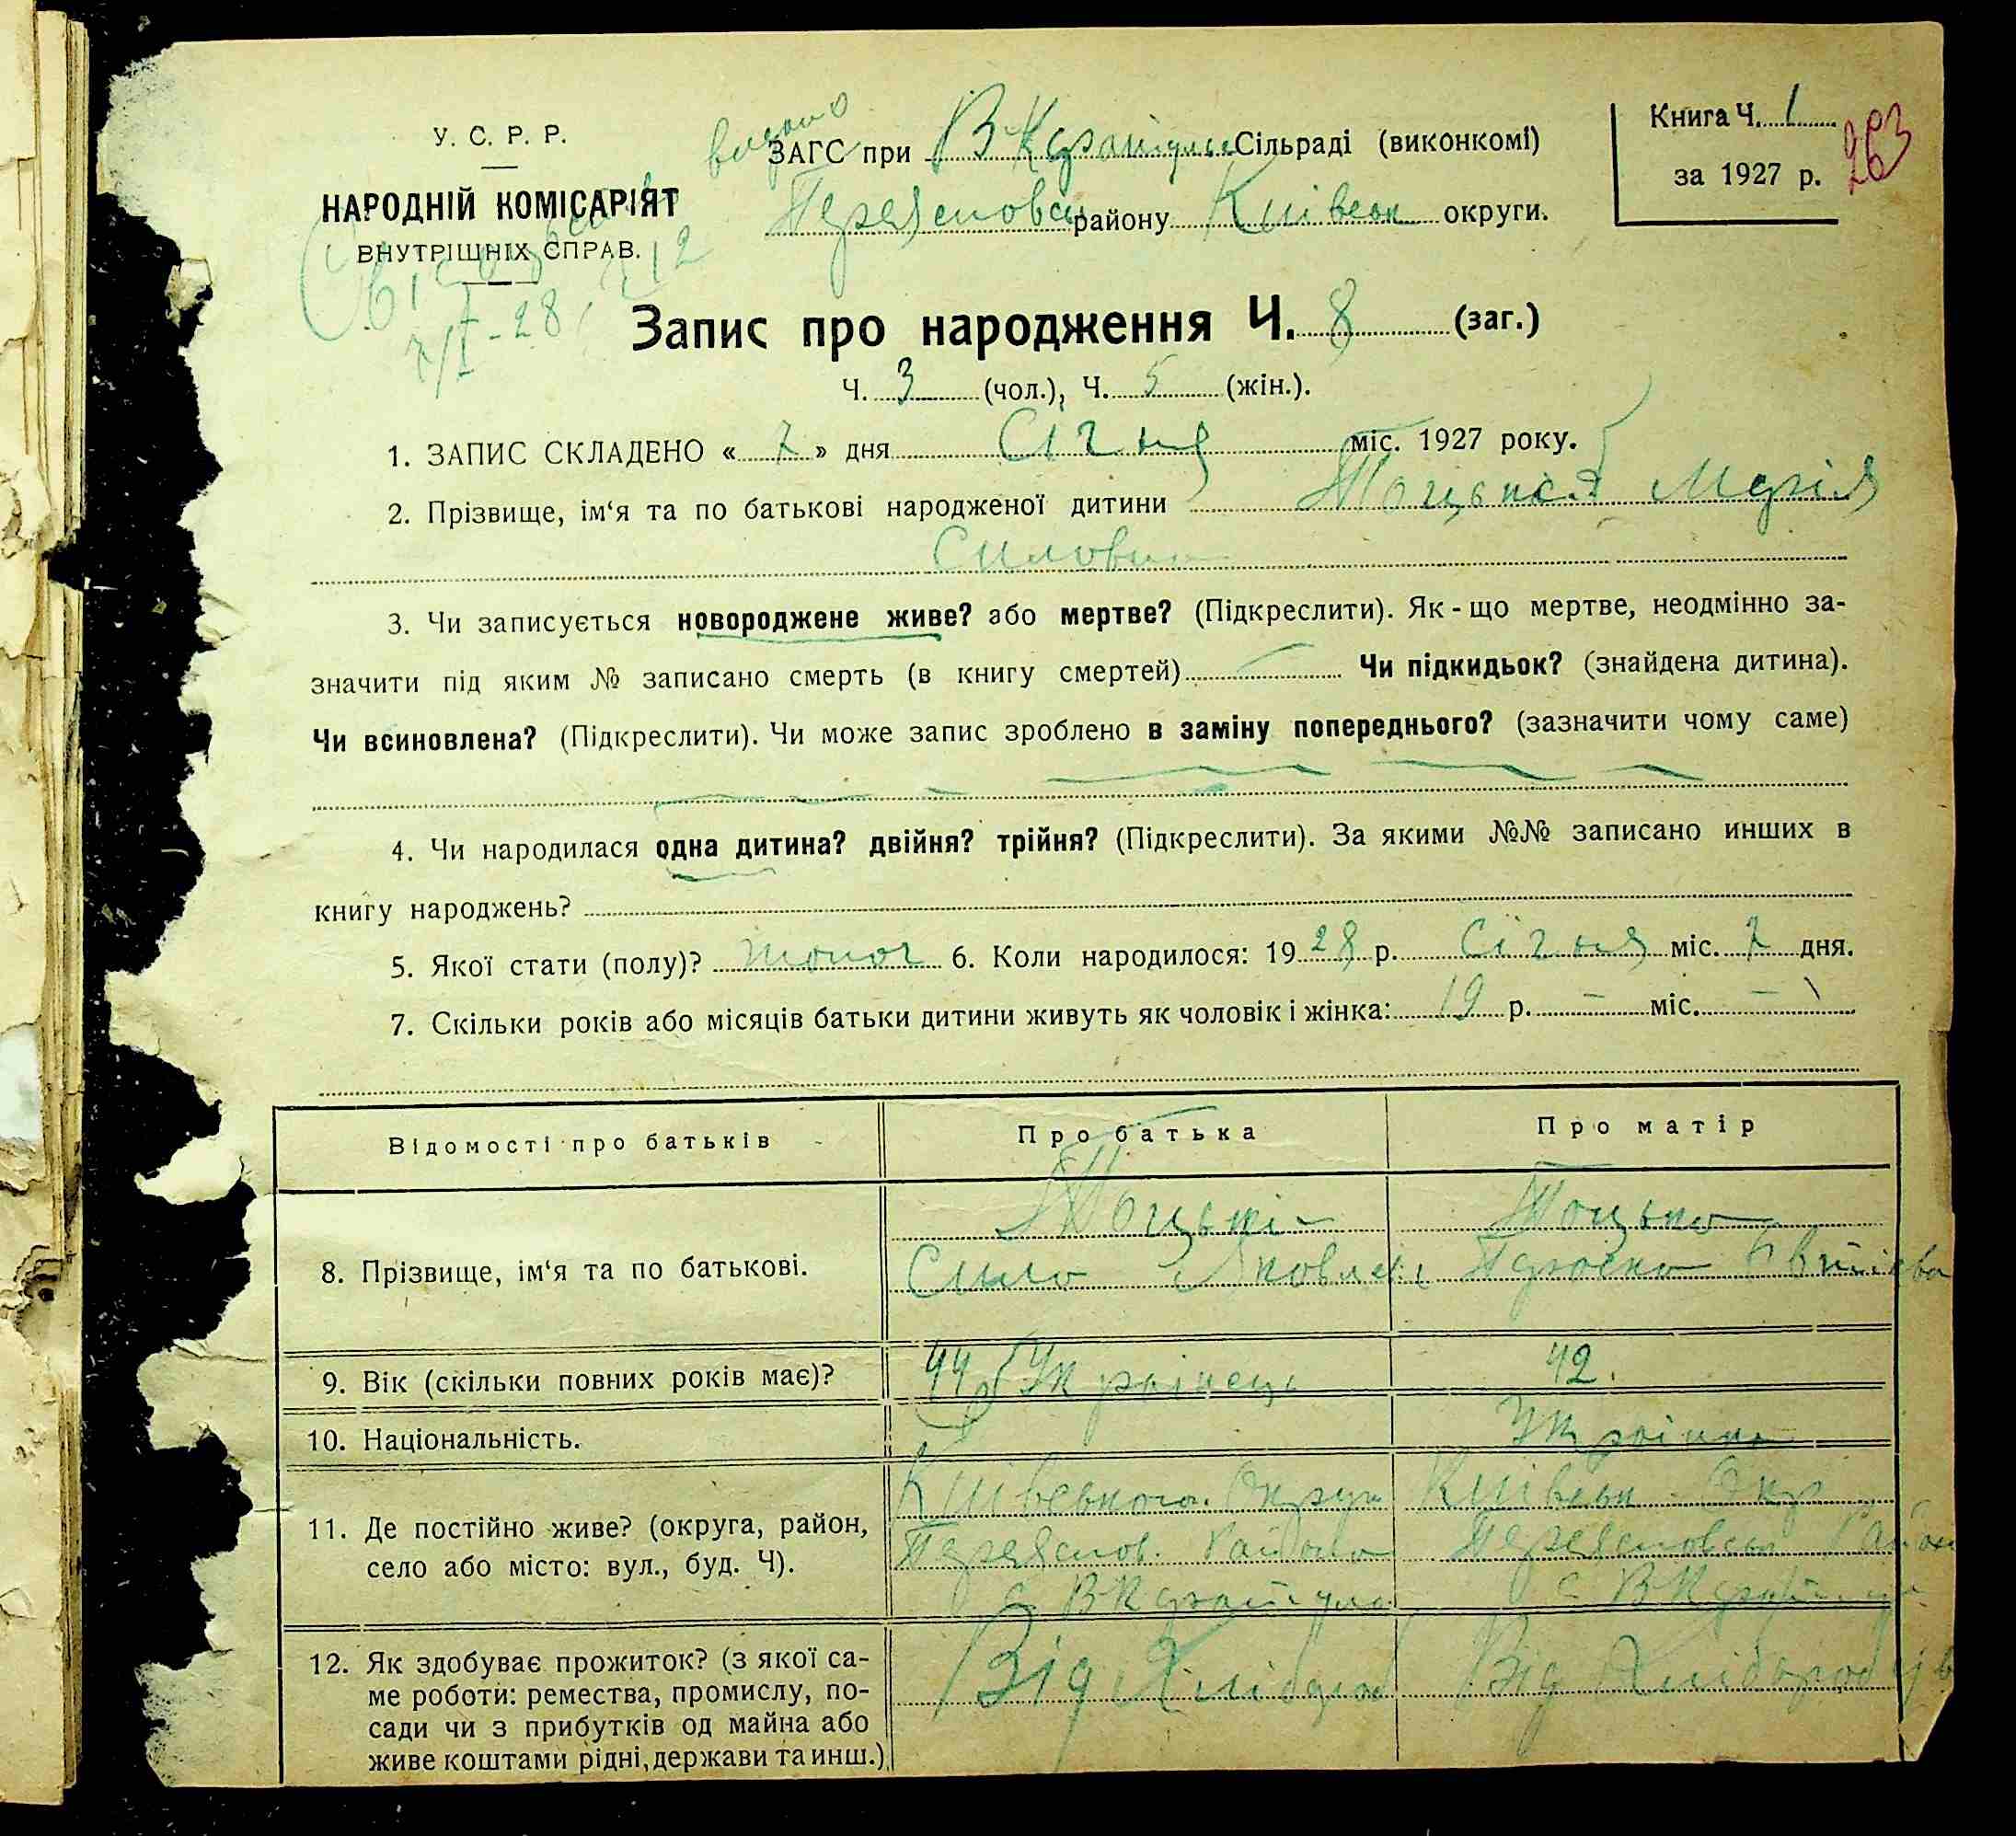 У. С. Р. Р.
НАРОДНІЙ КОМІСАРІЯТ
ВНУТРІШНІХ СПРАВ.
видано
7/I - 28
ЗАГС при В Каратули Сільраді (виконкомі)
Переясловськ району Київськ округи.
Книга Ч. 1
за 1927 р.
263
Запис про народження Ч. 8 (заг.)
Ч. 3 (чол.), Ч. 5 (жін.).
1. ЗАПИС СКЛАДЕНО « 7 » дня Січня міс. 1927 року.
2. Прізвище, ім‘я та по батькові народженої дитини Марія
Силовна
3. Чи записується новороджене живе? або мертве? (Підкреслити). Як - що мертве, неодмінно за-
значити під яким № записано смерть (в книгу смертей) Чи підкидьок? (знайдена дитина).
Чи всиновлена? (Підкреслити). Чи може запис зроблено в заміну попереднього? (зазначити чому саме)
4. Чи народилася одна дитина? двійня? трійня? (Підкреслити). За якими №№ записано инших в
книгу народжень?
5. Якої стати (полу)? жоноч 6. Коли народилося: 19 28 р. Січня міс. 7 дня.
7. Скільки років або місяців батьки дитини живуть як чоловік і жінка: 19 р. – міс. –
Відомості про батьків Про батька Про матір
8. Прізвище, ім‘я та по батькові. Тоцькі Тоцька
Сила Яковлев
9. Вік (скільки повних років має)? 44 Українець 42.
10. Національність. Українка
11. Де постійно живе? (округа, район,
село або місто: вул., буд. Ч).
Київського Округи Київськ Окр
Переяслов. Району Переясловськ Району
с В Каратула с В Каратул
12. Як здобуває прожиток? (з якої са-
ме роботи: ремества, промислу, по-
сади чи з прибутків од майна або
живе коштами рідні, держави та инш.)
Від Хлібороб Від Хлібороб